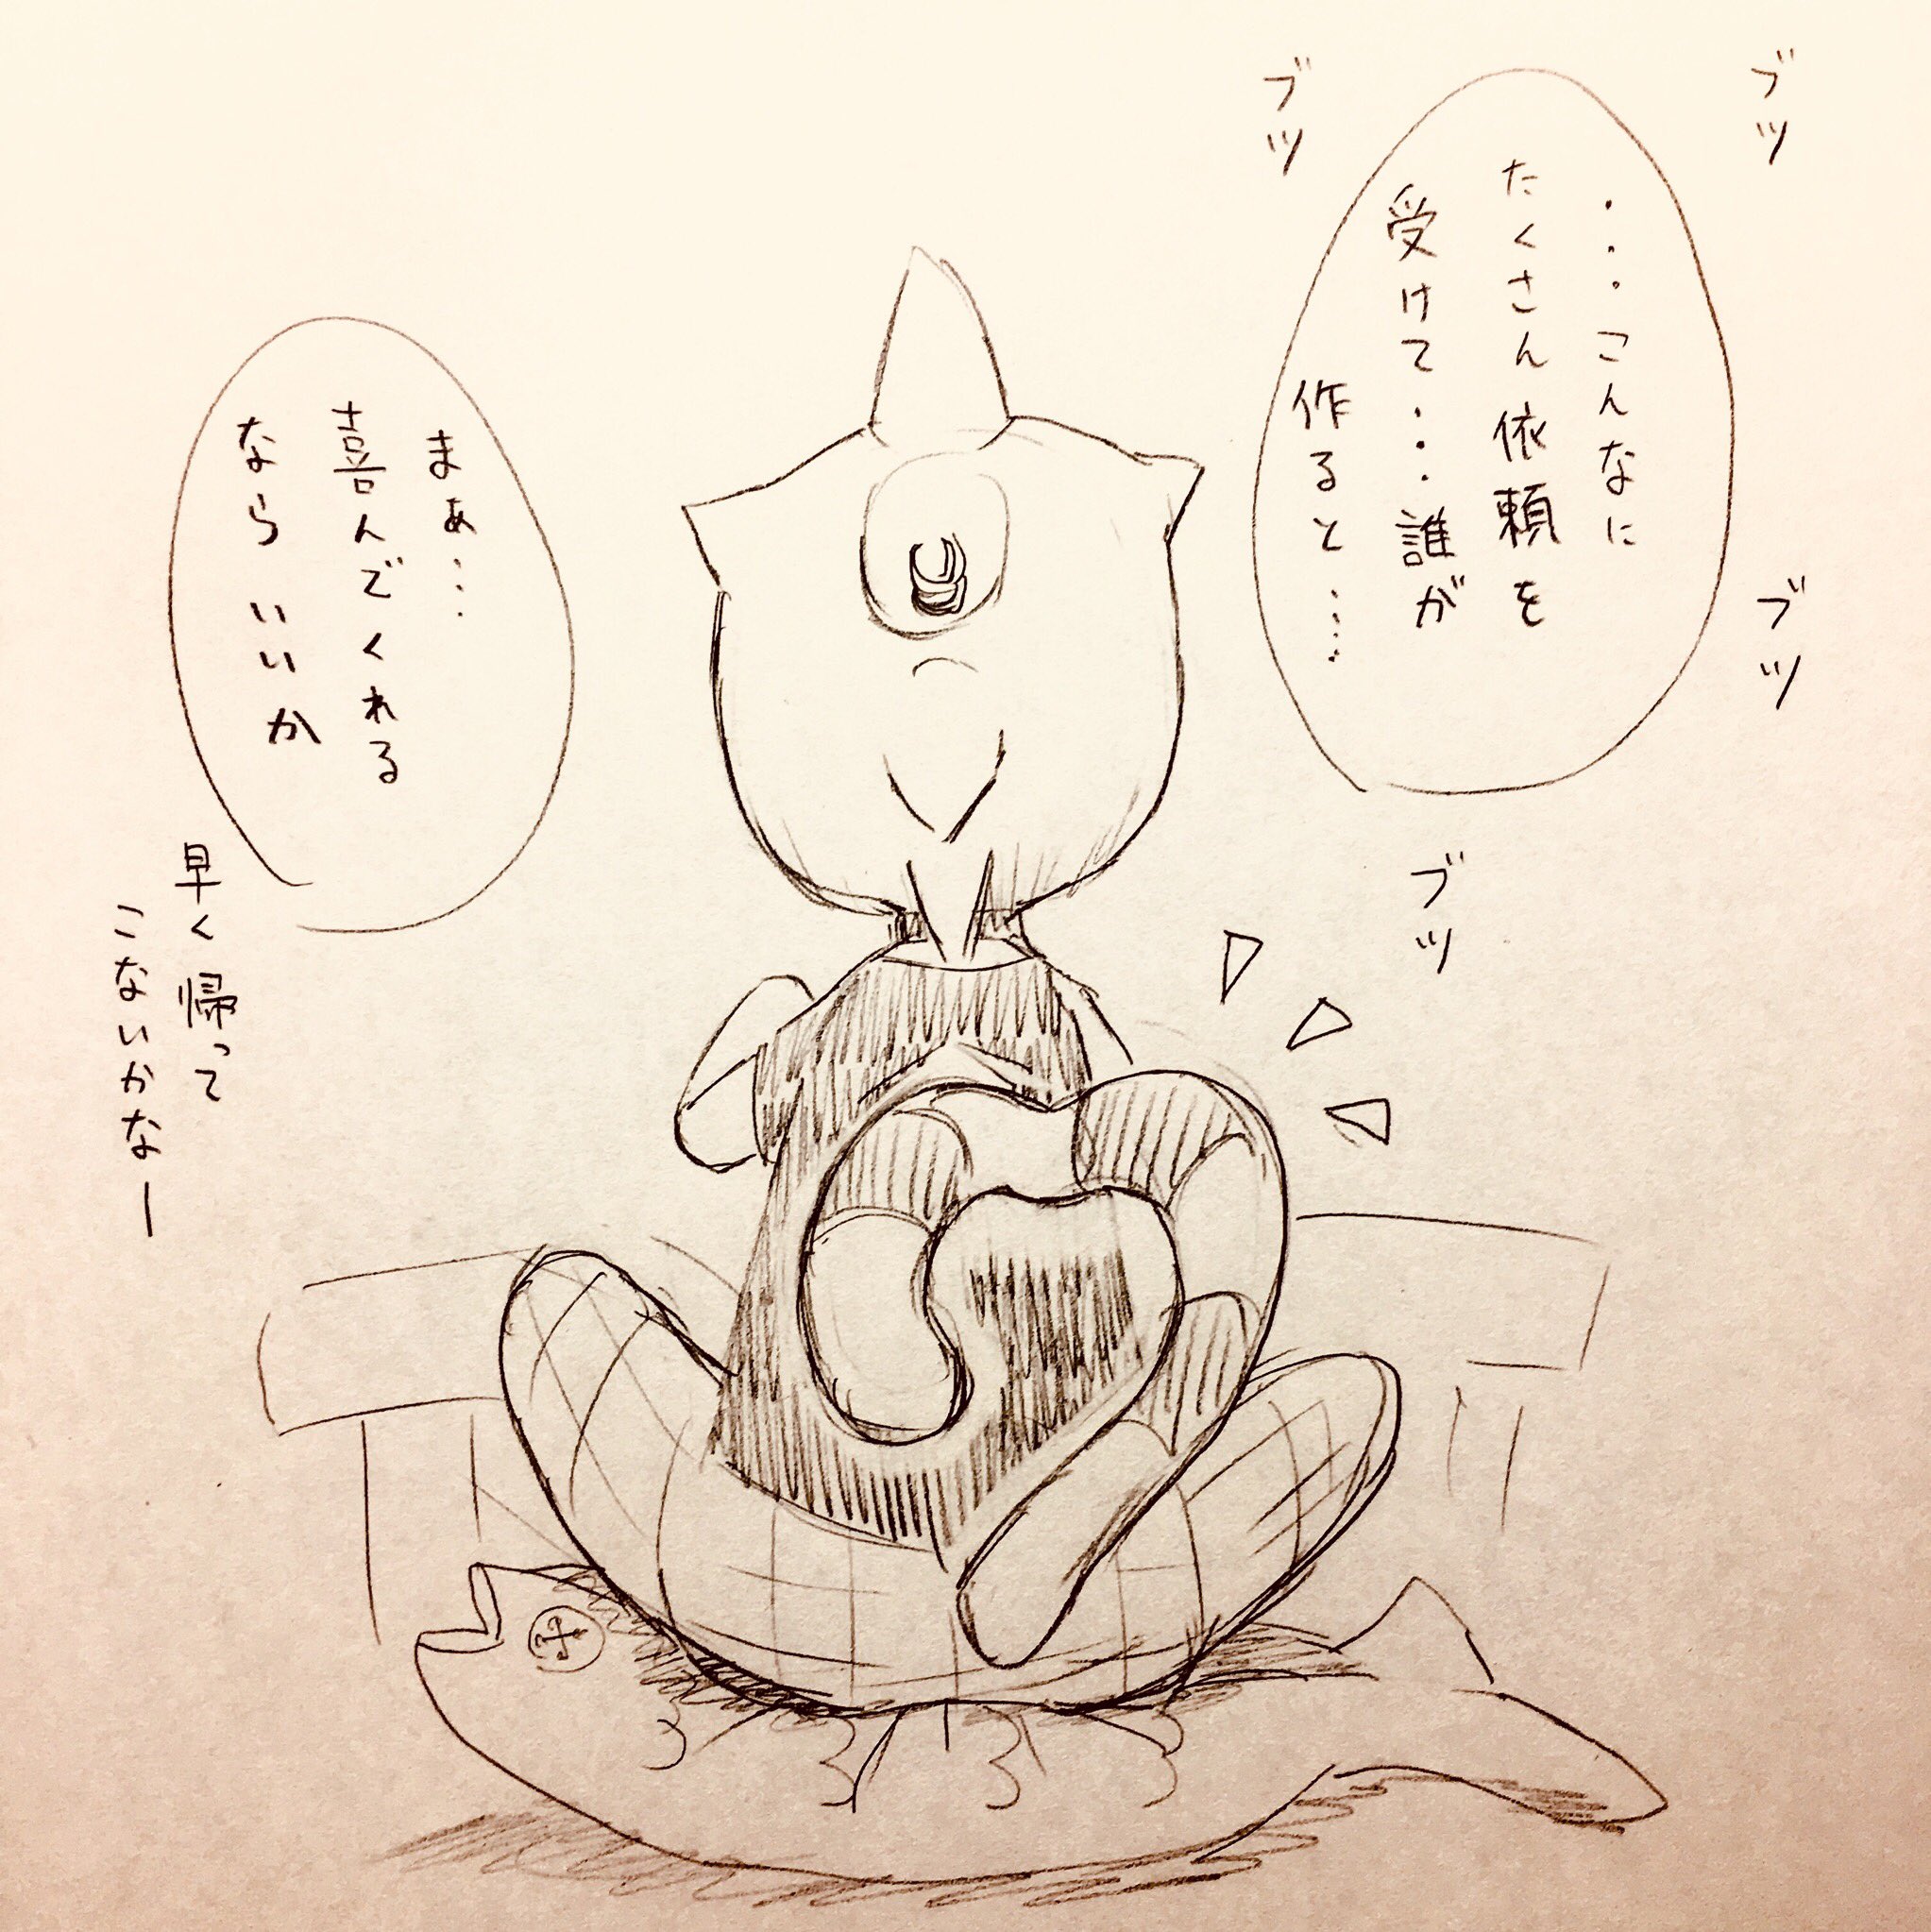 ブツ
ブツ
・・・こんなに
たくさん依頼を
受けて・・・誰が
作ると・・・・
ブツ
ブツ
まぁ・・・
喜んでくれる
ならいいか
早く帰って
こないかなー